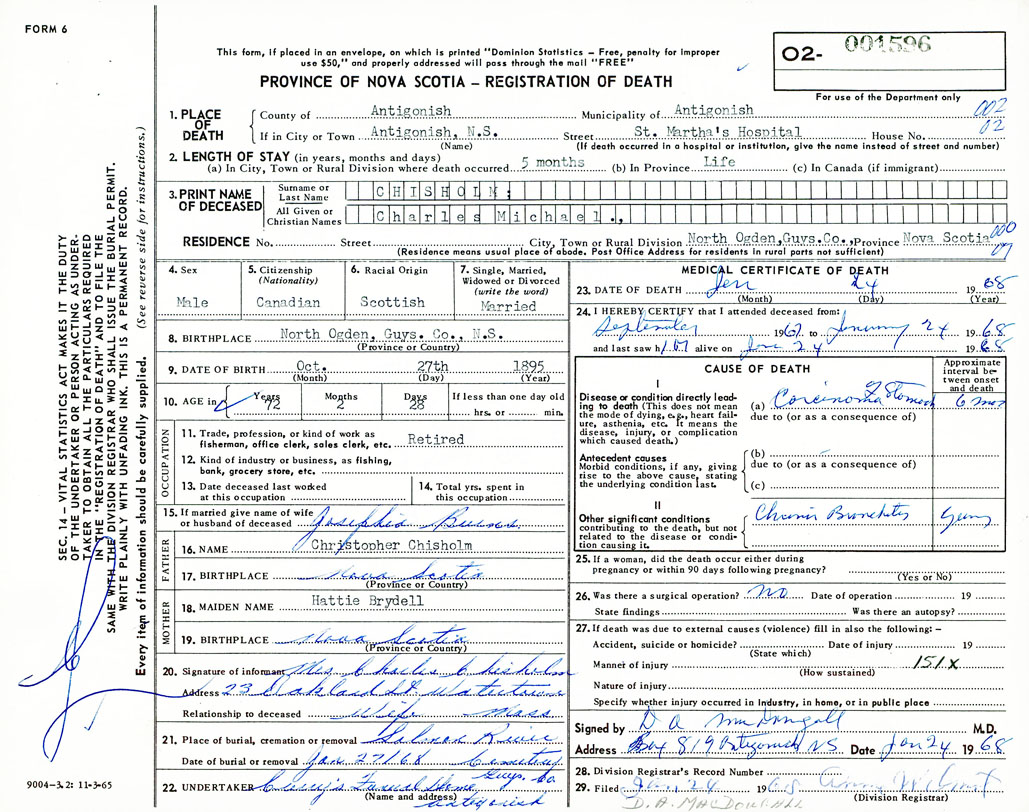 FORM 6
This form, if placed in an envelope, on which is printed "Dominion Statistics – Free, penalty for improper
use $50," and properly addressed will pass through the mail "FREE"
PROVINCE OF NOVA SCOTIA – REGISTRATION OF DEATH
O2- 001596
For use of the Department only
002
02
1. PLACE OF DEATH
County of Antigonish Municipality of Antigonish
If in City or Town Antigonish, N.S. Street St. Martha's Hospital House No.
(Name) (If death occurred in a hospital or institution, give the name instead of street and number)
2. LENGTH OF STAY (in years, months and days)
(a) In City, Town or Rural Division where death occurred 5 months (b) In Province Life (c) In Canada (if immigrant)
3. PRINT NAME OF DECEASED
Surname or Last Name CHISHOLM,
All Given or Christian Names Charles Michael.,
RESIDENCE No. Street City, Town or Rural Division North Ogden,Guys.Co., Province Nova Scotia 000
07
(Residence means usual place of abode. Post Office Address for residents in rural parts not sufficient)
4. Sex
Male
5. Citizenship
(Nationality)
Canadian
6. Racial Origin
Scottish
7. Single, Married,
Widowed or Divorced
(write the word)
Married
8. BIRTHPLACE North Ogden, Guys. Co., N.S.
(Province or Country)
9. DATE OF BIRTH Oct. 27th 1895
(Month) (Day) (Year)
10. AGE in Years 72 Months 2 Days 28 If less than one day old
hrs. or min.
OCCUPATION
11. Trade, profession, or kind of work as
fisherman, office clerk, sales clerk, etc. Retired
12. Kind of industry or business, as fishing,
bank, grocery store, etc.
13. Date deceased last worked
at this occupation
14. Total yrs. spent in
this occupation
15. If married give name of wife
or husband of deceased Josephine
FATHER
16. NAME Christopher Chisholm
17. BIRTHPLACE Nova Scotia
(Province or Country)
MOTHER
18. MAIDEN NAME Hattie Brydell
19. BIRTHPLACE Nova Scotia
(Province or Country)
20. Signature of informant Mrs Charles Chisholm
Address 23 Oakland St. Watertown
Relationship to deceased Wife Mass
21. Place of burial, cremation or removal Salmon River
Date of burial or removal Jan 27/68 Cemetery
Guys. Co
22. UNDERTAKER Funeral Home
(Name and address) Antigonish
MEDICAL CERTIFICATE OF DEATH
23. DATE OF DEATH Jan 24 19 68
(Month) (Day) (Year)
24. I HEREBY CERTIFY that I attended deceased from:
September 1967 to January 24 1968
and last saw him alive on Jan 24 1968
CAUSE OF DEATH
Approximate
interval between
onset
and death
I
Disease or condition directly leading
to death (This does not mean
the mode of dying, e.g., heart failure,
asthenia, etc. It means the
disease, injury, or complication
which caused death.)
(a) Carcinoma of Stomach 6 mos
due to (or as a consequence of)
Antecedent causes
Morbid conditions, if any, giving
rise to the above cause, stating
the underlying condition last.
(b)
due to (or as a consequence of)
(c)
II
Other significant conditions
contributing to the death, but not
related to the disease or condition
causing it.
Chronic Bronchitis years
25. If a woman, did the death occur either during
pregnancy or within 90 days following pregnancy?
(Yes or No)
26. Was there a surgical operation? No Date of operation 19
State findings Was there an autopsy?
27. If death was due to external causes (violence) fill in also the following: –
Accident, suicide or homicide? Date of injury 19
(State which)
Manner of injury 151X
(How sustained)
Nature of injury
Specify whether injury occurred in Industry, in home, or in public place
Signed by D A MacDougall M.D.
Address Box 819 Antigonish NS Date Jan 24 19 68
28. Division Registrar's Record Number
29. Filed Jan. 24 1968
(Division Registrar)
D. A. MACDOUGALL
SEC. 14 – VITAL STATISTICS ACT MAKES IT THE DUTY
OF THE UNDERTAKER OR PERSON ACTING AS UNDERTAKER
TO OBTAIN ALL THE PARTICULARS REQUIRED
IN THE "REGISTRATION OF DEATH" AND TO FILE THE
SAME WITH THE DIVISION REGISTRAR WHO SHALL ISSUE THE BURIAL PERMIT.
WRITE PLAINLY WITH UNFADING INK. THIS IS A PERMANENT RECORD.
Every item of information should be carefully supplied. (See reverse side for instructions.)
9004-3.2: 11-3-65